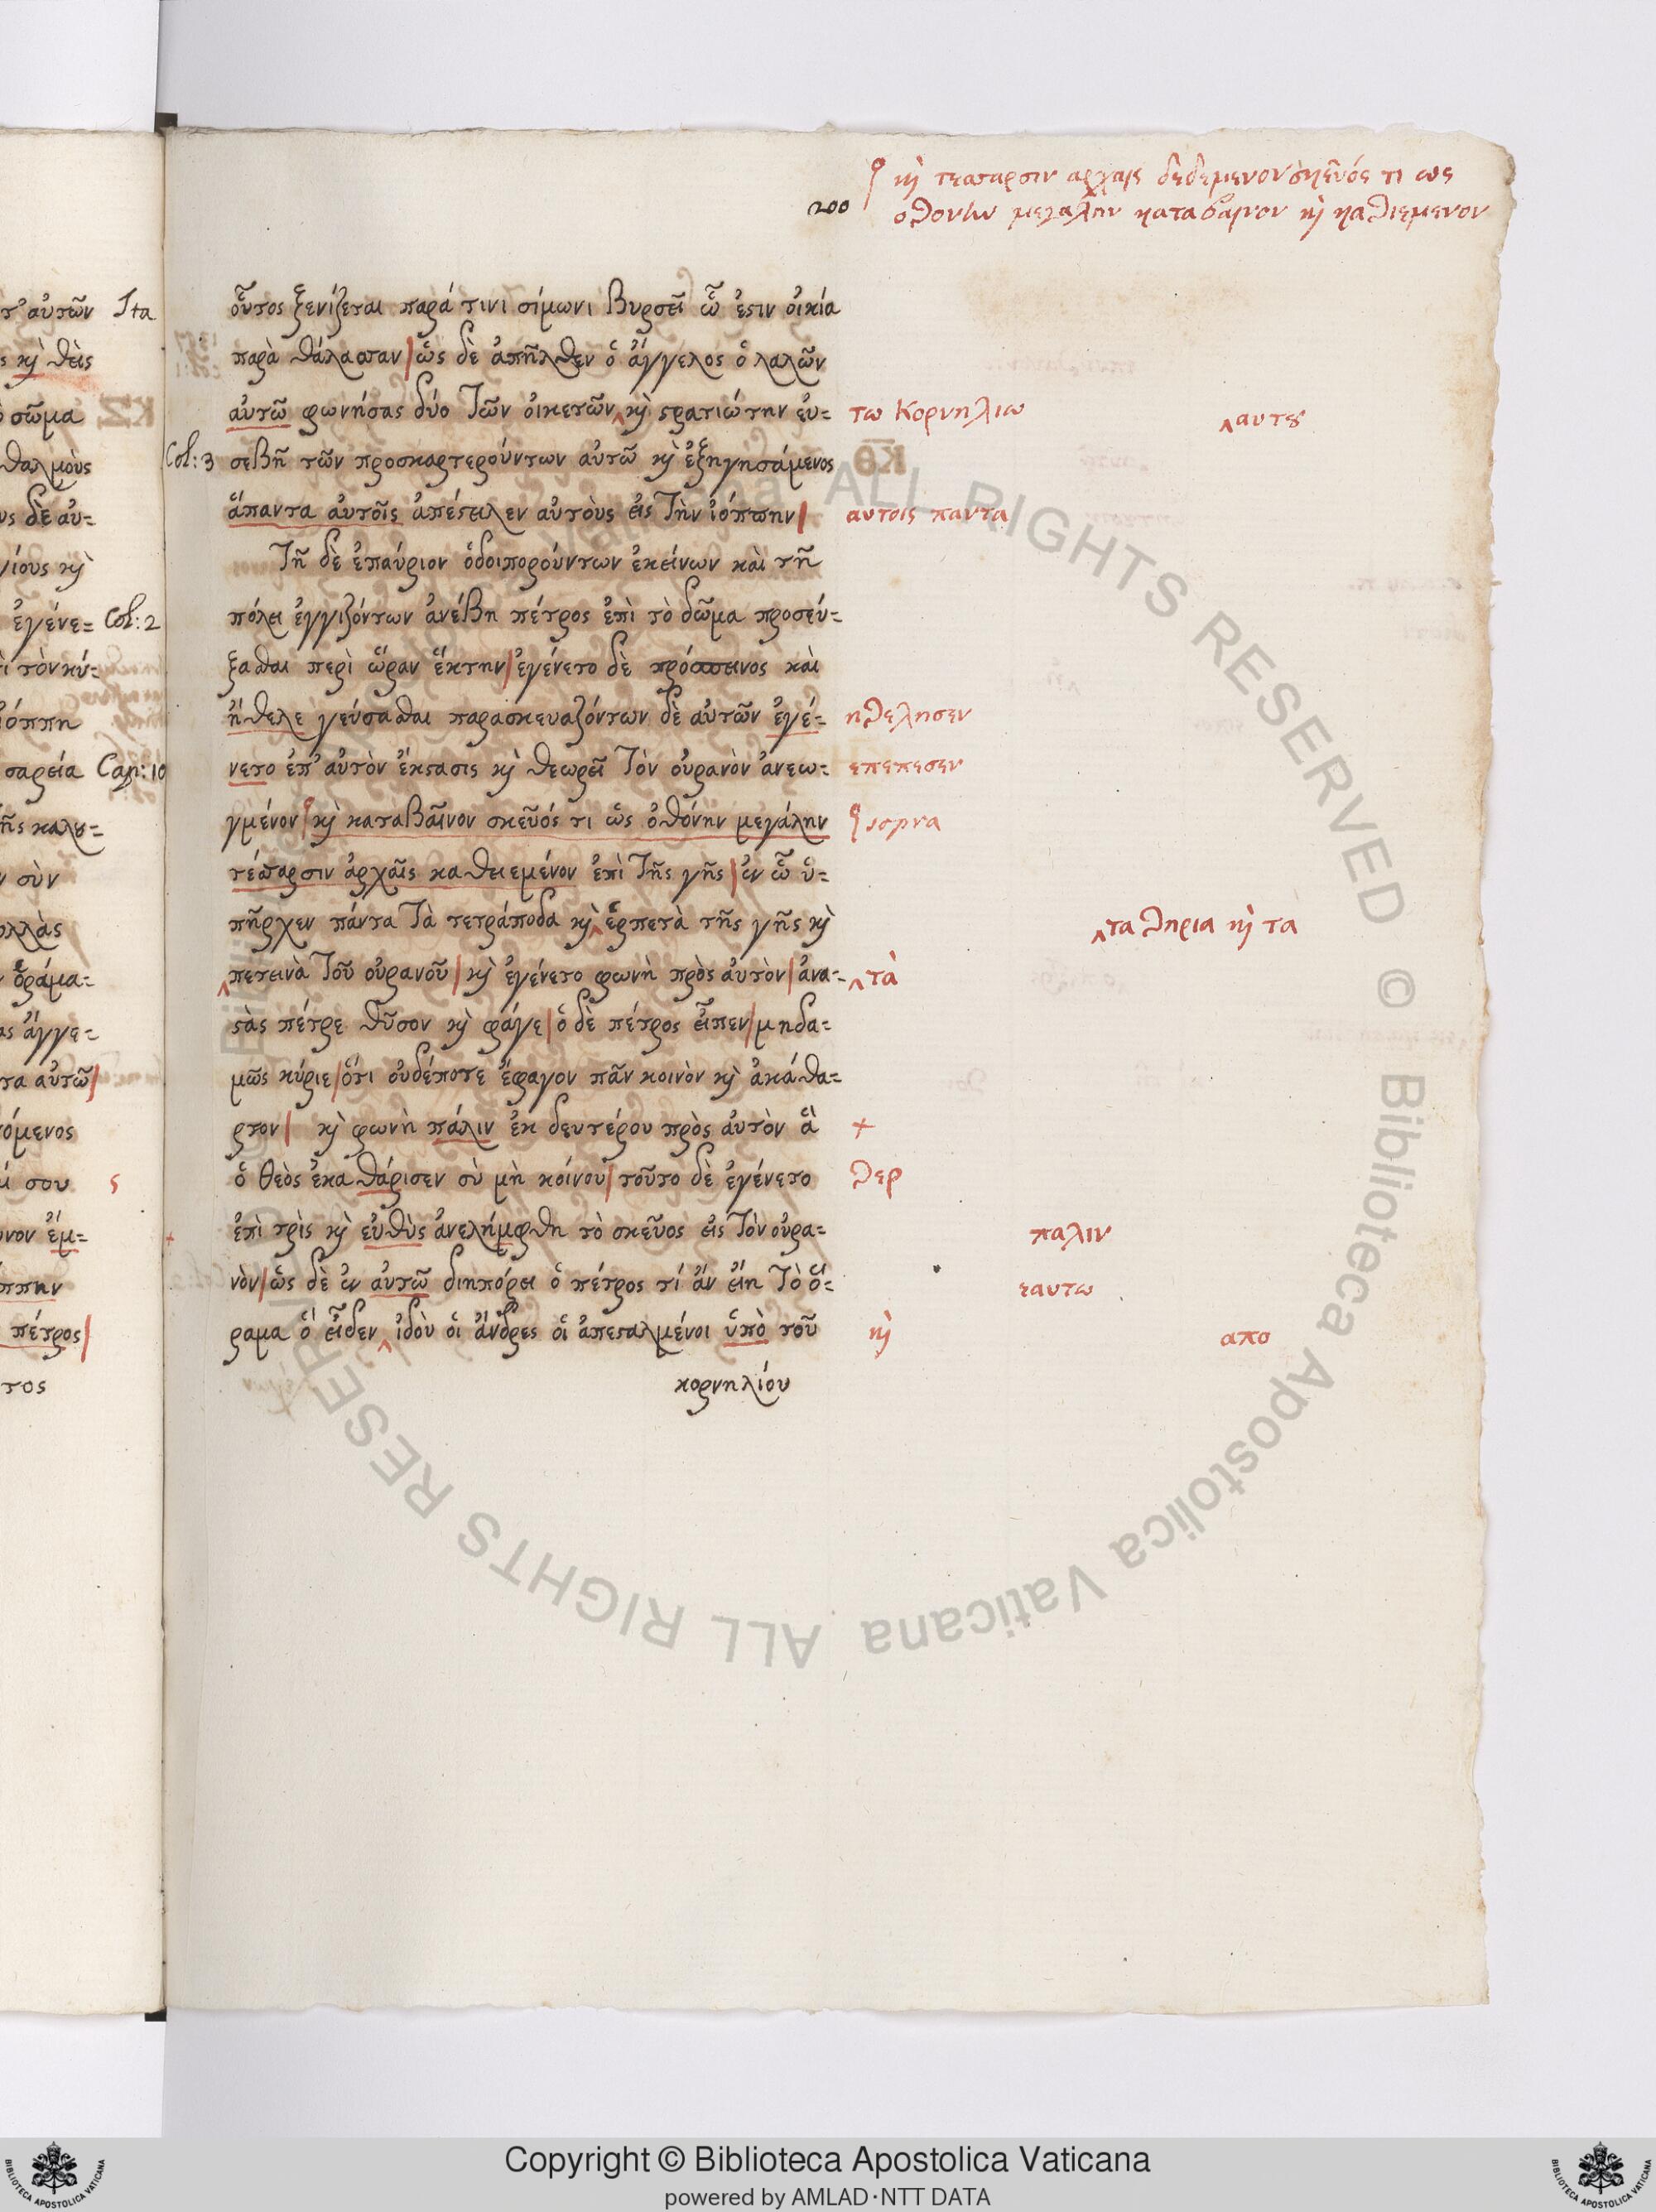 ϙ κ̀ τεσσαρσιν αρχαις δεδεμενον σκευός τι ως
200 οθονην μεγαλην καταβαινον κ̀ καθιεμενον
τ' αὐτῶν Ita
ς κ̀ θεὶς
σῶμα
θαλμοὺς
υς δὲ αὐ=
γίους κ̀
ἐγένε= Col: 2
ὶ τὸν κύ=
ιόππη
σαρεία Cap: 10
ῆς καλȣ=
ν σὺν
ολλὰς
ν ὁράμα=
ας ἄγγε=
τα αὐτῶ|
όμενος
ά σου ς
νον ἔμ= +
ππην
πέτρος|
τος
οὗτος ξενίζεται παρά τινι σίμωνι βυρσεῖ ὧ ἐστιν οἰκία
παρὰ θάλασσαν | ὡς δὲ ἀπῆλθεν ὁ ἄγγελος ὁ λαλῶν
αὐτῶ φωνήσας δύο τῶν οἰκετῶν ‸ κ̀ στρατιώτην εὐ= τω Κορνηλιω ‸ αυτȣ
Col: 3 σεβῆ τῶν προσκαρτερούντων αὐτῶ κ̀ ἐξηγησάμενος
ἅπαντα αὐτοῖς ἀπέστειλεν αὐτοὺς εἰς τὴν ἰόππην | αυτοις παντα
τῆ δὲ ἐπαύριον ὁδοιπορούντων ἐκείνων καὶ τῆ
πόλει ἐγγιζόντων ἀνέβη πέτρος ἐπὶ τὸ δῶμα προσεύ=
ξασθαι περὶ ὥραν ἕκτην | ἐγένετο δὲ πρόσπεινος καὶ
ἤθελε γεύσασθαι παρασκευαζόντων δὲ αὐτῶν ἐγέ= ηθελησεν
νετο ἐπ' αὐτὸν ἔκστασις κ̀ θεωρεῖ τὸν οὐρανὸν ἀνεω= επεπεσεν
γμένον ϙ κ̀ καταβαῖνον σκεῦός τι ὡς ὀθόνην μεγάλην ϙ supra
τέσσαρσιν ἀρχαῖς καθιεμένον ἐπὶ τῆς γῆς | ἐν ὧ ὑ=
πῆρχεν πάντα τὰ τετράποδα κ̀ ‸ ἑρπετὰ τῆς γῆς κ̀ ‸ τα θηρια κ̀ τα
‸ πετεινὰ τοῦ οὐρανοῦ | κ̀ ἐγένετο φωνὴ πρὸς αὐτὸν | ἀνα= ‸ τὰ
στὰς πέτρε θῦσον κ̀ φάγε | ὁ δὲ πέτρος εἶπεν | μηδα=
μῶς κύριε | ὅτι οὐδέποτε ἔφαγον πᾶν κοινὸν κ̀ ἀκάθα=
ρτον | κ̀ φωνὴ πάλιν ἐκ δευτέρου πρὸς αὐτὸν ἃ +
ὁ θεὸς ἐκαθάρισεν σὺ μὴ κοίνου | τοῦτο δὲ ἐγένετο θερ
ἐπὶ τρὶς κ̀ εὐθὺς ἀνελήμφθη τὸ σκεῦος εἰς τὸν οὐρα= παλιν
νὸν | ὡς δὲ ἐν αὐτῶ διηπόρει ὁ πέτρος τί ἂν εἴη τὸ ὅ= εαυτω
ραμα ὃ εἶδεν ‸ ἰδοὺ οἱ ἄνδρες οἱ ἀπεσταλμένοι ὑπὸ τοῦ κ̀ απο
κορνηλίου
Copyright © Biblioteca Apostolica Vaticana
powered by AMLAD·NTT DATA